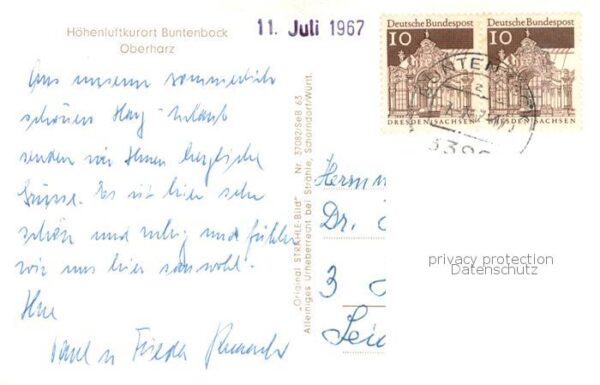 Höhenluftkurort Buntenbock
Oberharz
11. Juli 1967
Deutsche Bundespost
10
DRESDEN/SACHSEN
Deutsche Bundespost
10
DRESDEN/SACHSEN
BUNTEN
3392
Aus unserem sommerlich
schönen Harz-Urlaub
senden wir Ihnen herzliche
Grüsse. Es ist hier sehr
schön und ruhig und fühlen
wir uns hier sauwohl.
Ihre
u Frieder
"Original STRÄHLE-Bild" Nr. 37082/SeB 63
Alleiniges Urheberrecht bei: Strähle, Schorndorf/Württ.
Herrn
Dr.
3
privacy protection
Datenschutz